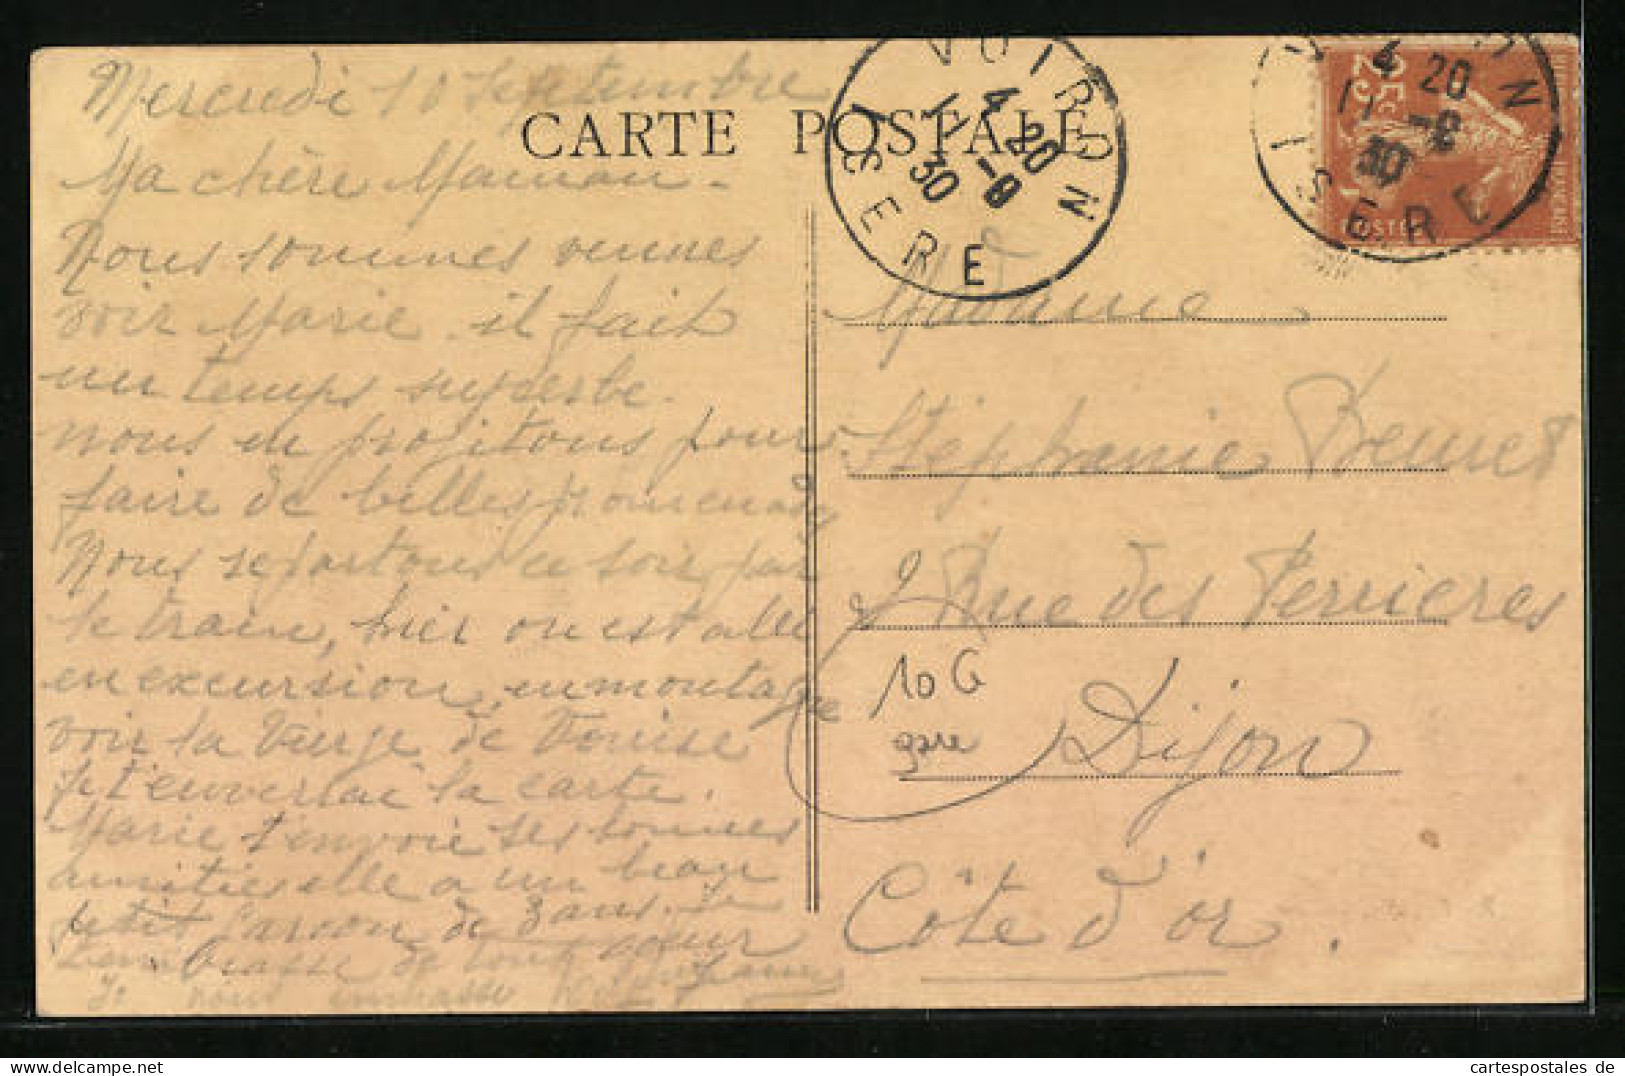 Mercredi 10 Septembre
CARTE POSTALE
VOIRON
4 20
11 -9
30
ISERE
4 20
11 -9
30
ISERE
25c
POSTES
Ma chère Maman.
Nous sommes venues
voir Marie. il fait
un temps superbe.
nous en projitons pour
faire de belles promenades
Nous repartons ce soir par
le train, hier on est allé
en excursion, en montagne
voir la Vierge de Vouise
je t'enverrai la carte.
Marie t'envoie ses bonnes
amitiés elle a un beau
petit Garçon de 3 ans. Je
t'embrasse de tout coeur
Je vous embrasse
Madame
Stéphanie
Rue des Perrieres
Dijon
Côte d'or.
10 G
gare
cartespostales de
www.cartespostales.de